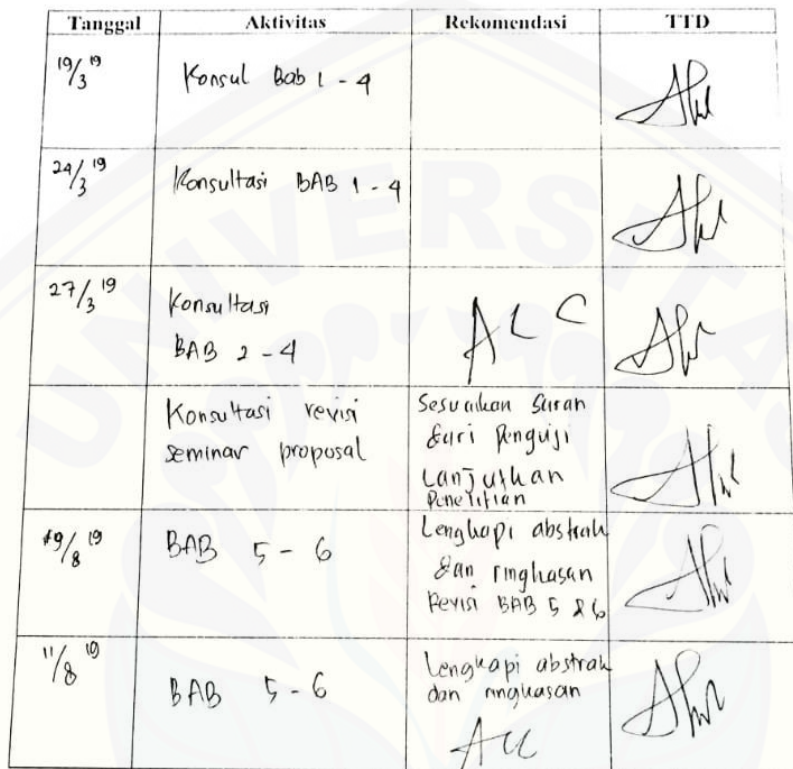 Tanggal Aktivitas Rekomendasi TTD
19/3 19 Konsul Bab 1 - 4
24/3 19 Konsultasi BAB 1 - 4
27/3 19 Konsultasi
BAB 2 - 4
ACC
Konsultasi revisi
seminar proposal
Sesuaikan Saran
dari Penguji
Lanjutkan
Penelitian
9/8 19 BAB 5 - 6
Lengkapi abstrak
dan ringkasan
Revisi BAB 5 & 6
11/8 19 BAB 5 - 6
Lengkapi abstrak
dan ringkasan
ACC
UNIVERSITAS